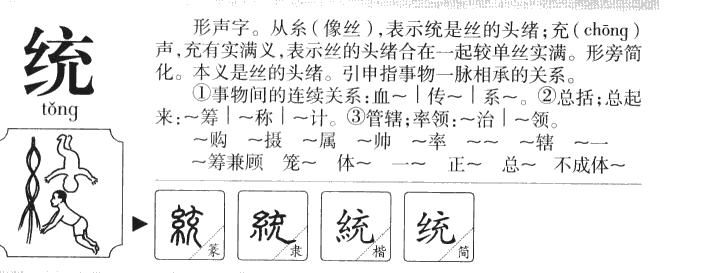 统
tǒng
形声字。从糸(像丝),表示统是丝的头绪;充(chōng)
声,充有实满义,表示丝的头绪合在一起较单丝实满。形旁简
化。本义是丝的头绪。引申指事物一脉相承的关系。
①事物间的连续关系:血～｜传～｜系～。②总括;总起
来:～筹｜～称｜～计。③管辖;率领:～治｜～领。
～购 ～摄 ～属 ～帅 ～率 ～～ ～辖 ～一
～筹兼顾 笼～ 体～ 一～ 正～ 总～ 不成体～
統 篆
統 隶
統 楷
统 简